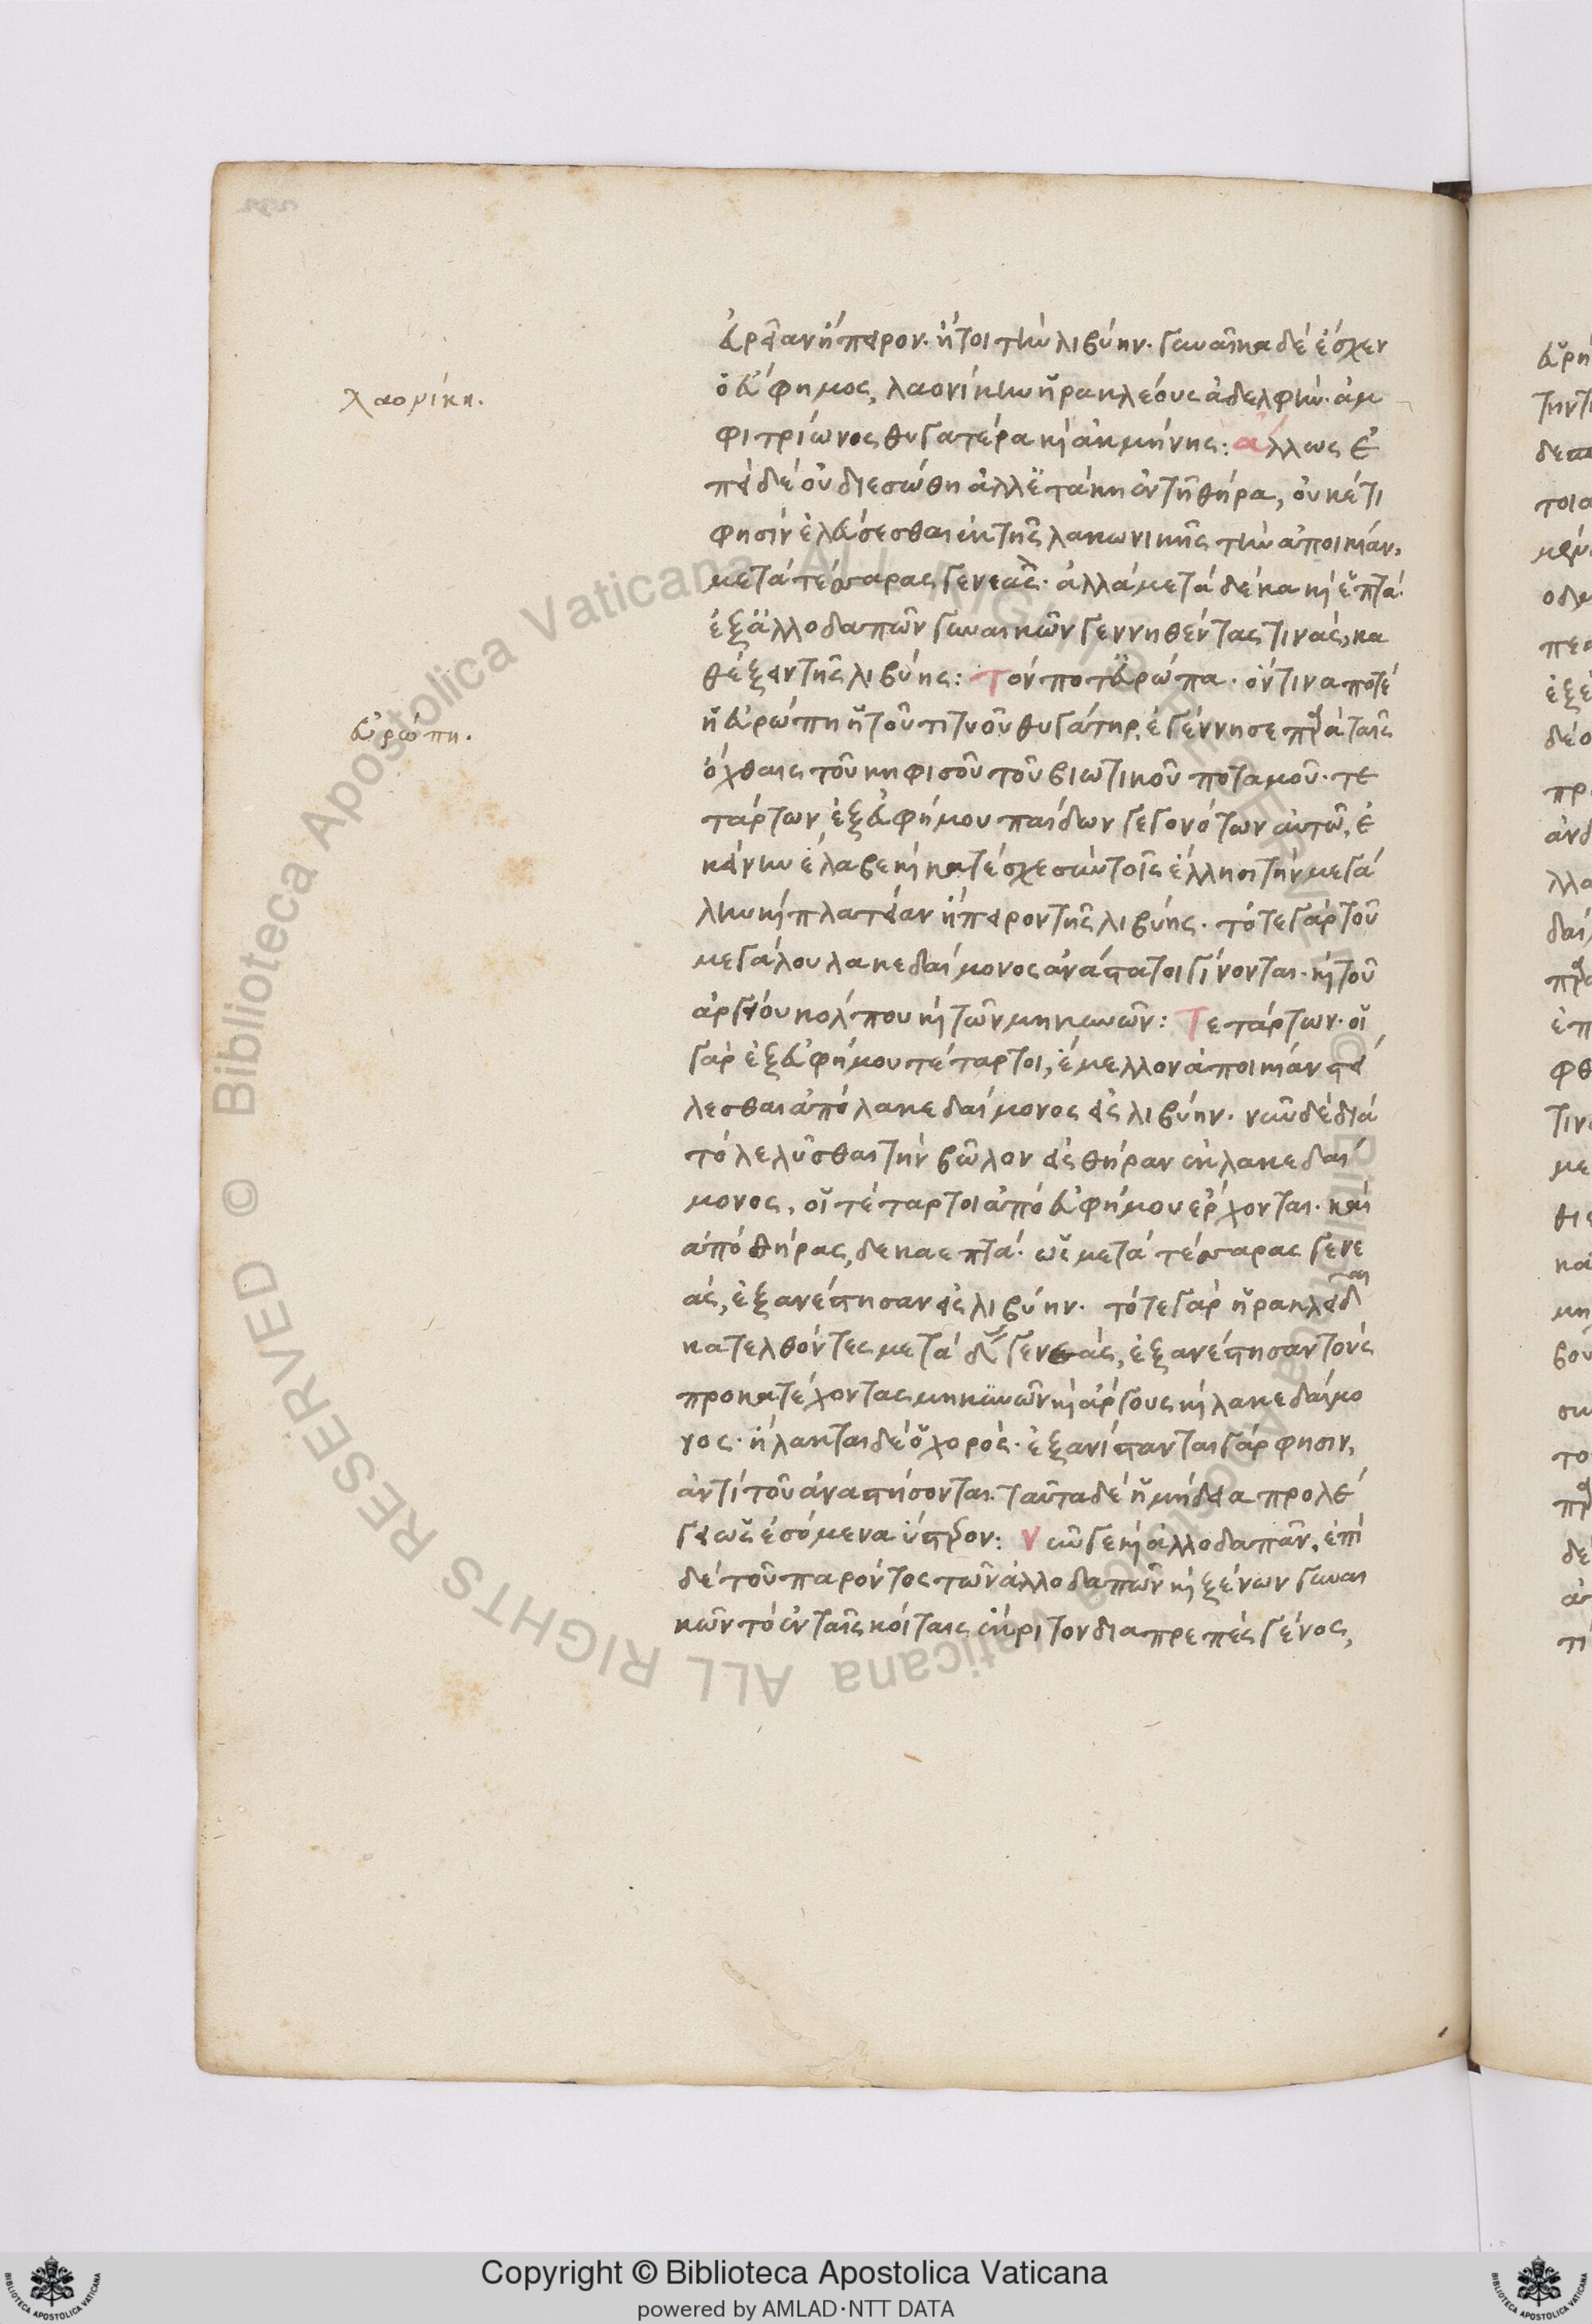 εὐρεῖαν ἤπειρον. ἤτοι τὴν λιβύην. γυναῖκα δὲ ἔσχεν
ὁ εὔφημος, λαονίκην ἡρακλέους ἀδελφήν. ἀμ
φιτρίωνος θυγατέρα καὶ ἀκμήνης: ἄλλως ἐ
πεὶ δὲ οὐ διεσώθη ἀλλ' ἐτάκη ἐν τῆ θήρα, οὐκέτι
φησὶν ἐλεύσεσθαι ἐκ τῆς λακωνικῆς τὴν ἀποικίαν,
μετὰ τέσσαρας γενεὰς. ἀλλὰ μετὰ δέκα καὶ ἑπτὰ.
ἐξ ἀλλοδαπῶν γυναικῶν γεννηθέντας τινὰς, κα
θέξειν τῆς λιβύης: τόν ποτ' εὐρώπα. ὅντινα ποτὲ
ἡ εὐρώπη ἡ τοῦ τιτυοῦ θυγάτηρ, ἐγέννησε παρὰ ταῖς
ὄχθαις τοῦ κηφισοῦ τοῦ βιωτικοῦ ποταμοῦ. τε
τάρτων ἐξ εὐφήμου παίδων γεγονότων αὐτῶ, ἐ
κείνην ἔλαβε καὶ κατέσχε σὺν τοῖς ἕλλησι τὴν μεγά
λην καὶ πλατεῖαν ἤπειρον τῆς λιβύης. τότε γὰρ τοῦ
μεγάλου λακεδαίμονος ἀνάστατοι γίνονται. καὶ τοῦ
ἀργείου κόλπου καὶ τῶν μηκυνῶν: Τετάρτων. οἱ
γὰρ ἐξ εὐφήμου τέταρτοι, ἔμελλον ἀποικίαν στεί
λεσθαι ἀπὸ λακεδαίμονος εἰς λιβύην. νῦν δὲ διὰ
τὸ λελῦσθαι τὴν βῶλον εἰς θήραν ἐκ λακεδαί
μονος, οἱ τέταρτοι ἀπὸ εὐφήμου ἔρχονται. καὶ
ἀπὸ θήρας, δεκαεπτά. ὡς μετὰ τέσσαρας γενε
ὰς, ἐξανέστησαν εἰς λιβύην. τότε γὰρ ἡρακλεῖδαι
κατελθόντες μετὰ δ γενεὰς, ἐξανέστησαν τοὺς
προκατέχοντας μηκυνῶν καὶ ἄργους καὶ λακεδαίμο
νος. ἤλακται δὲ ὁ χορὸς. ἐξανίστανται γάρ φησιν,
ἀντὶ τοῦ ἀναστήσονται. ταῦτα δὲ ἡ μήδεια προλέ
γει ὡς ἐσόμενα ὕστερον: νῦν γε καὶ ἀλλοδαπᾶν, ἐπὶ
δὲ τοῦ παρόντος τῶν ἀλλοδαπῶν καὶ ξένων γυναι
κῶν τὸ ἐν ταῖς κοίταις ἔκκριτον διαπρεπὲς γένος,
λαονίκη.
εὐρώπη.
Copyright © Biblioteca Apostolica Vaticana
powered by AMLAD·NTT DATA